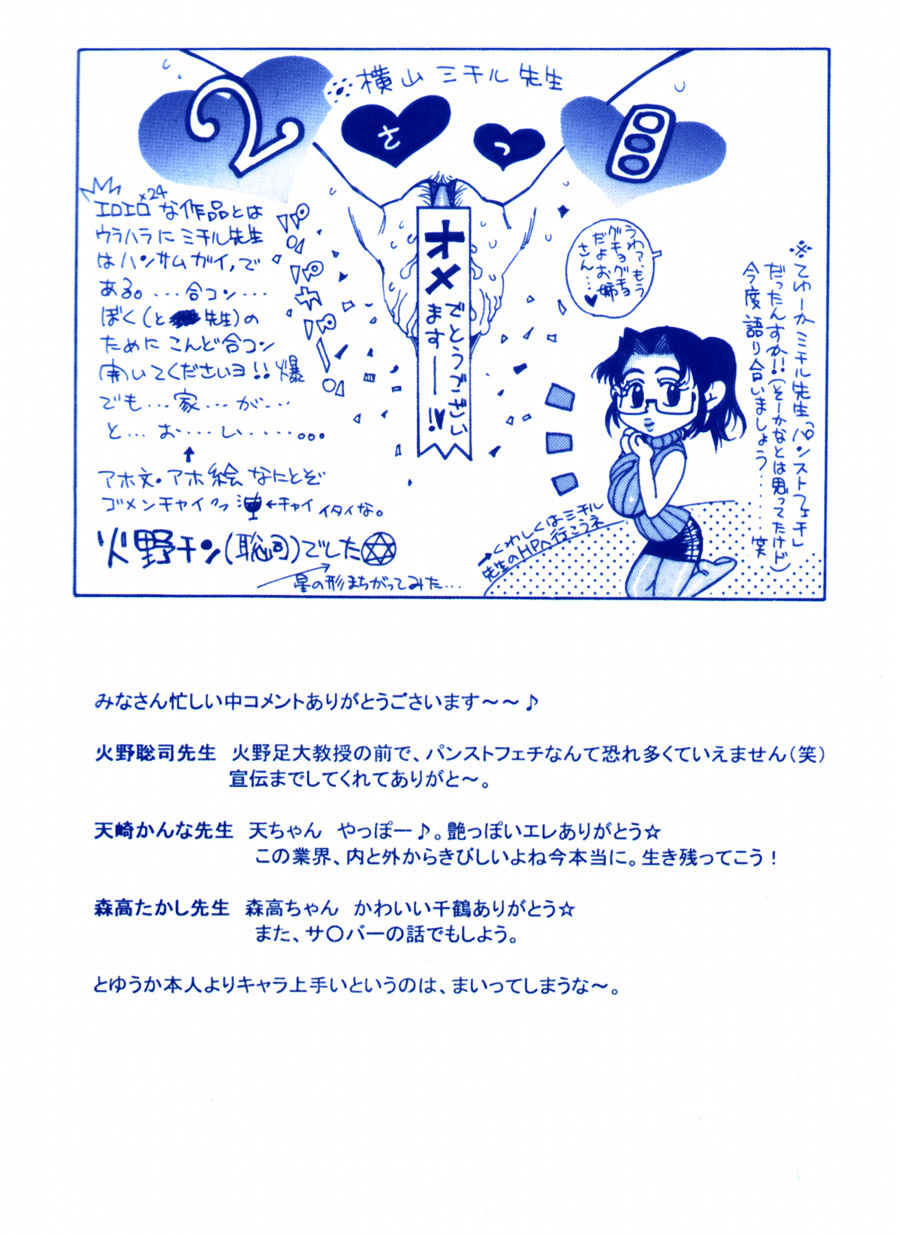 横山 ミチル 先生
2 さつ
エロエロ×24 な作品とは
ウラハラに ミチル先生
はハンサムガイ,で
ある。...合コン...
ぼく(と 先生)の
ために こんど合コン
開いてくださいヨ!!爆
でも...家...が...
と...お...し.....。。。
↑
アホ文・アホ絵 なにとぞ
ゴメンチャイクッ ←チャイ イタイな。
火野チン(聡司)でした✡
星の形まちがってみた...
オメ
でとうござい
ます――!!
うわァ、もう
グチョグチョ
だよお姉
さん...♥
※てゆーかミチル先生「パンストフェチ」
だったんすか!!(そーかなとは思ってたけど)
今度語り合いましょう....笑
→くわしくはミチル
先生のHPへ行こうネ
みなさん忙しい中コメントありがとうございます～～♪
火野聡司先生 火野足大教授の前で、パンストフェチなんて恐れ多くていえません(笑)
宣伝までしてくれてありがと～。
天崎かんな先生 天ちゃん やっぽー♪。艶っぽいエレありがとう☆
この業界、内と外からきびしいよね今本当に。生き残ってこう!
森高たかし先生 森高ちゃん かわいい千鶴ありがとう☆
また、サ〇バーの話でもしよう。
とゆうか本人よりキャラ上手いというのは、まいってしまうな～。